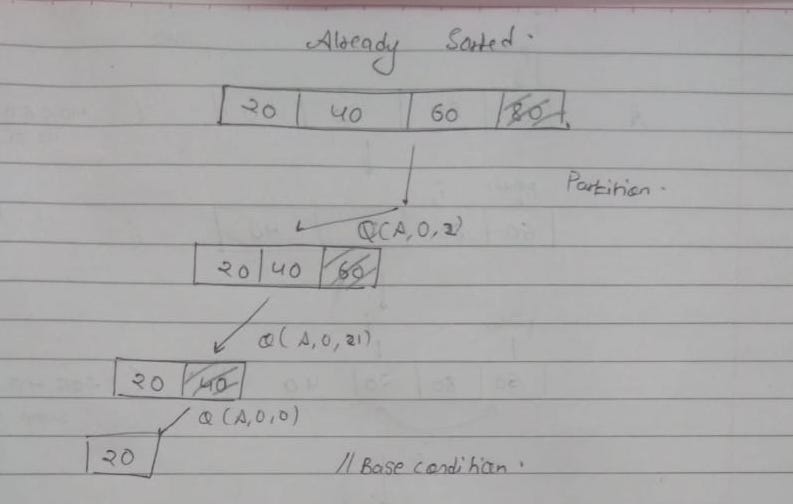 Already Sorted.
20 40 60 80
Partition.
Q(A,0,2)
20 40 60
Q(A,0,21)
20 40
Q(A,0,0)
20
// Base condition.